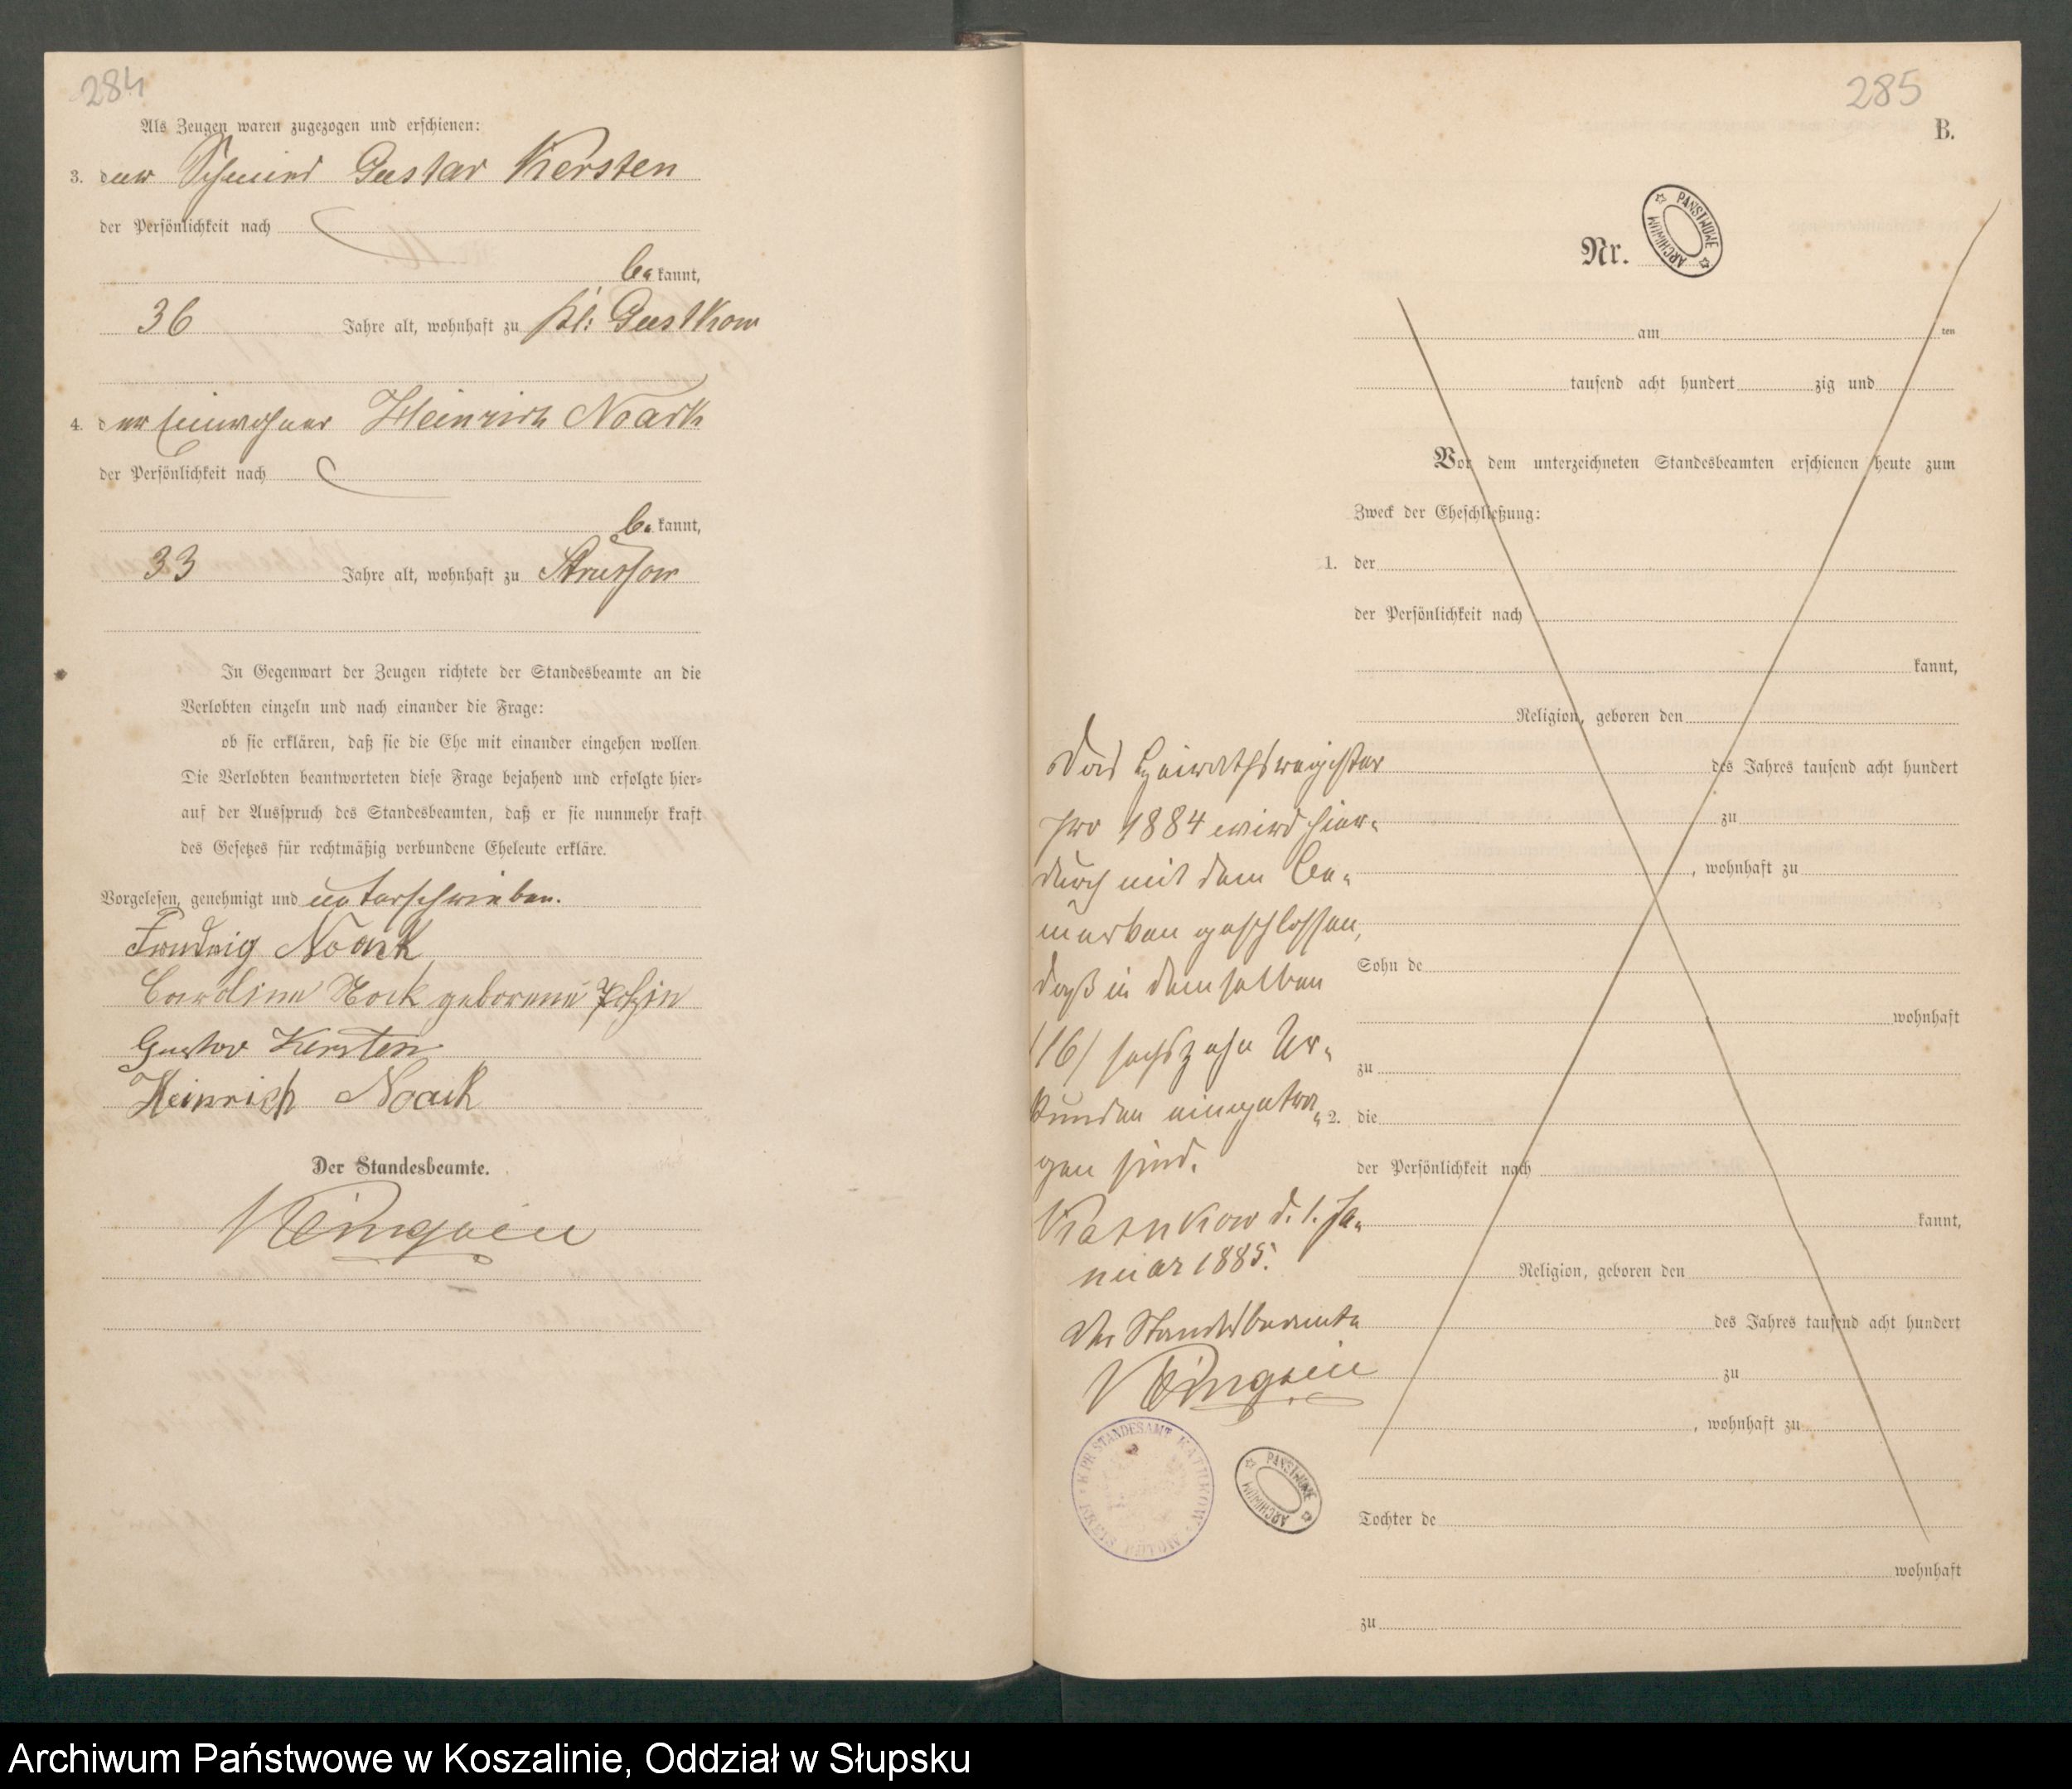 284
Als Zeugen waren zugezogen und erschienen:
3. der Schmied Gustav Kersten
der Persönlichkeit nach
be kannt,
36 Jahre alt, wohnhaft zu Kl: Gustkow
4. der Einwohner Heinrich Noack
der Persönlichkeit nach
be kannt,
33 Jahre alt, wohnhaft zu Strussow
In Gegenwart der Zeugen richtete der Standesbeamte an die
Verlobten einzeln und nach einander die Frage:
ob sie erklären, daß sie die Ehe mit einander eingehen wollen
Die Verlobten beantworteten diese Frage bejahend und erfolgte hier-
auf der Ausspruch des Standesbeamten, daß er sie nunmehr kraft
des Gesetzes für rechtmäßig verbundene Eheleute erkläre.
Vorgelesen, genehmigt und unterschrieben.
Noack
Caroline Nock geborene
Gustav Kersten
Heinrich Noack
Der Standesbeamte.
285
B.
Nr.
PAŃSTWOWE ARCHIWUM
am ten
tausend acht hundert zig und
Vor dem unterzeichneten Standesbeamten erschienen heute zum
Zweck der Eheschließung:
1. der
der Persönlichkeit nach
kannt,
Religion, geboren den
des Jahres tausend acht hundert
zu
, wohnhaft zu
Sohn de
wohnhaft
zu
2. die
der Persönlichkeit nach
kannt,
Religion, geboren den
des Jahres tausend acht hundert
zu
, wohnhaft zu
Tochter de
wohnhaft
zu
Das Heirathsregister
pro 1884 wird hier-
durch mit dem Be-
merken geschlossen,
daß in demselben
(16) sechszehn Ur-
kunden eingetra-
gen sind.
Kathkow d. 1. Ja-
nuar 1885.
Der Standesbeamte
K. PR. STANDESAMT KATHKOW
PAŃSTWOWE ARCHIWUM
Archiwum Państwowe w Koszalinie, Oddział w Słupsku